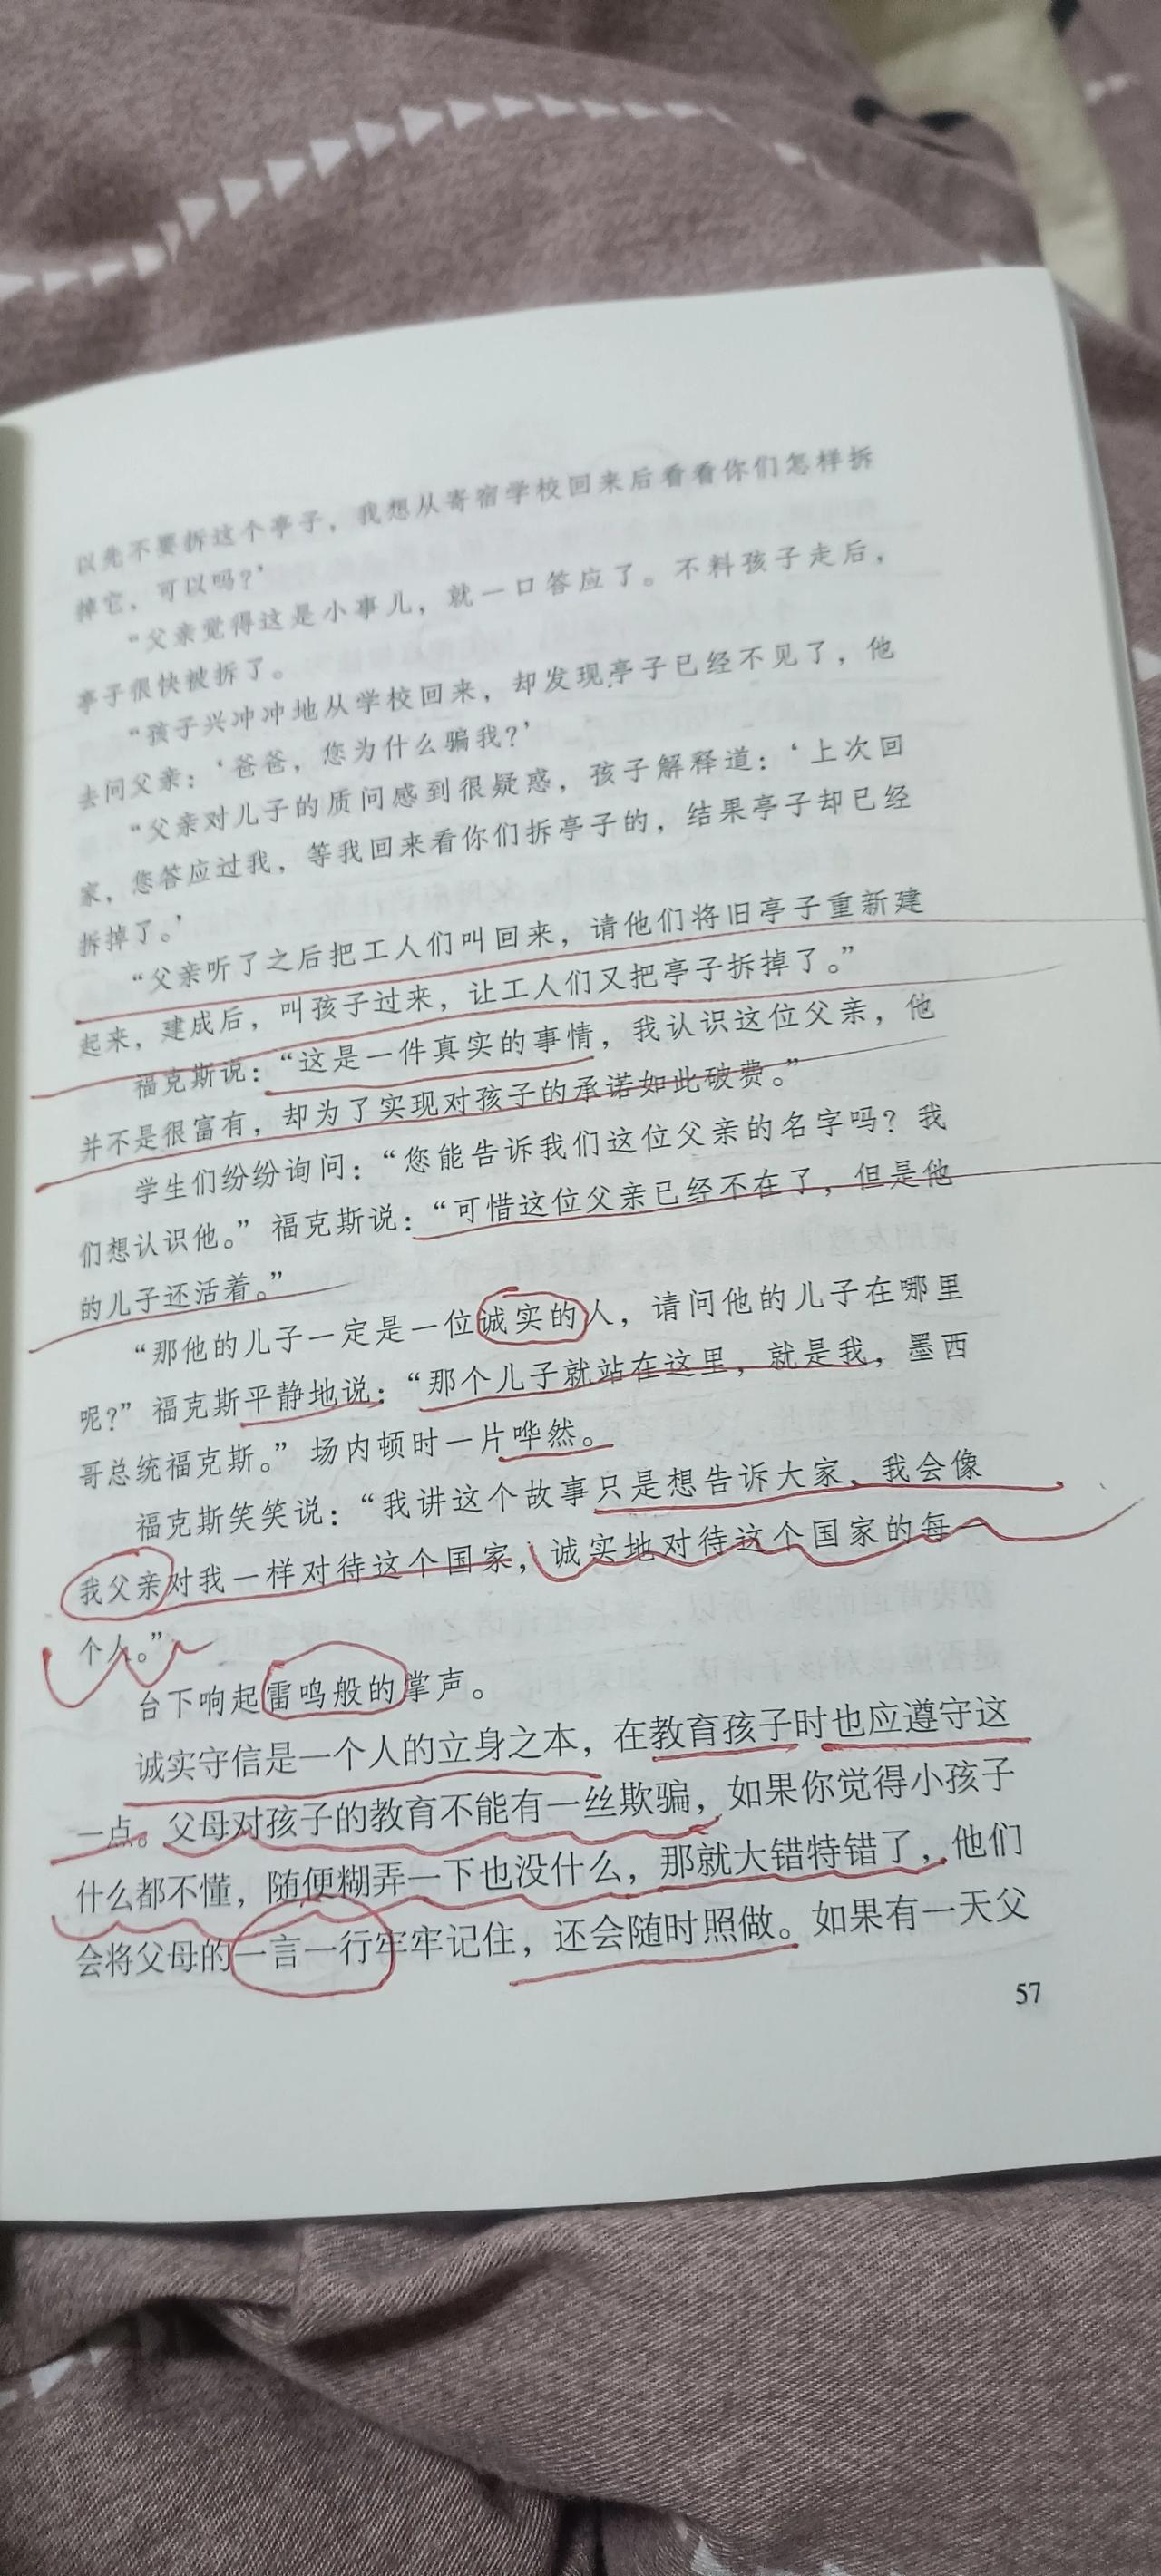 以先不要拆这个亭子，我想从寄宿学校回来后看看你们怎样拆
掉它，可以吗？’
“父亲觉得这是小事儿，就一口答应了。不料孩子走后，
亭子很快被拆了。
“孩子兴冲冲地从学校回来，却发现亭子已经不见了，他
去问父亲：‘爸爸，您为什么骗我？’
“父亲对儿子的质问感到很疑惑，孩子解释道：‘上次回
家，您答应过我，等我回来看你们拆亭子的，结果亭子却已经
拆掉了。’
“父亲听了之后把工人们叫回来，请他们将旧亭子重新建
起来，建成后，叫孩子过来，让工人们又把亭子拆掉了。”
福克斯说：“这是一件真实的事情，我认识这位父亲，他
并不是很富有，却为了实现对孩子的承诺如此破费。”
学生们纷纷询问：“您能告诉我们这位父亲的名字吗？我
们想认识他。”福克斯说：“可惜这位父亲已经不在了，但是他
的儿子还活着。”
“那他的儿子一定是一位诚实的人，请问他的儿子在哪里
呢？”福克斯平静地说：“那个儿子就站在这里，就是我，墨西
哥总统福克斯。”场内顿时一片哗然。
福克斯笑笑说：“我讲这个故事只是想告诉大家，我会像
我父亲对我一样对待这个国家，诚实地对待这个国家的每一
个人。”
台下响起雷鸣般的掌声。
诚实守信是一个人的立身之本，在教育孩子时也应遵守这
一点。父母对孩子的教育不能有一丝欺骗，如果你觉得小孩子
什么都不懂，随便糊弄一下也没什么，那就大错特错了，他们
会将父母的一言一行牢牢记住，还会随时照做。如果有一天父
57